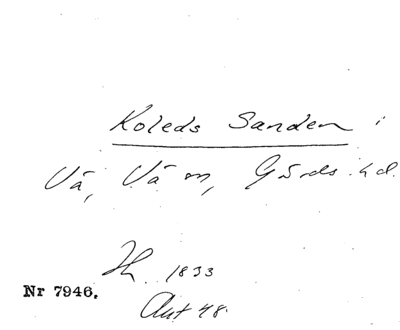 Koleds Sanden i
Vä, Vä sn, Gärds hd.
1833
Nr 7946.
Akt 48.